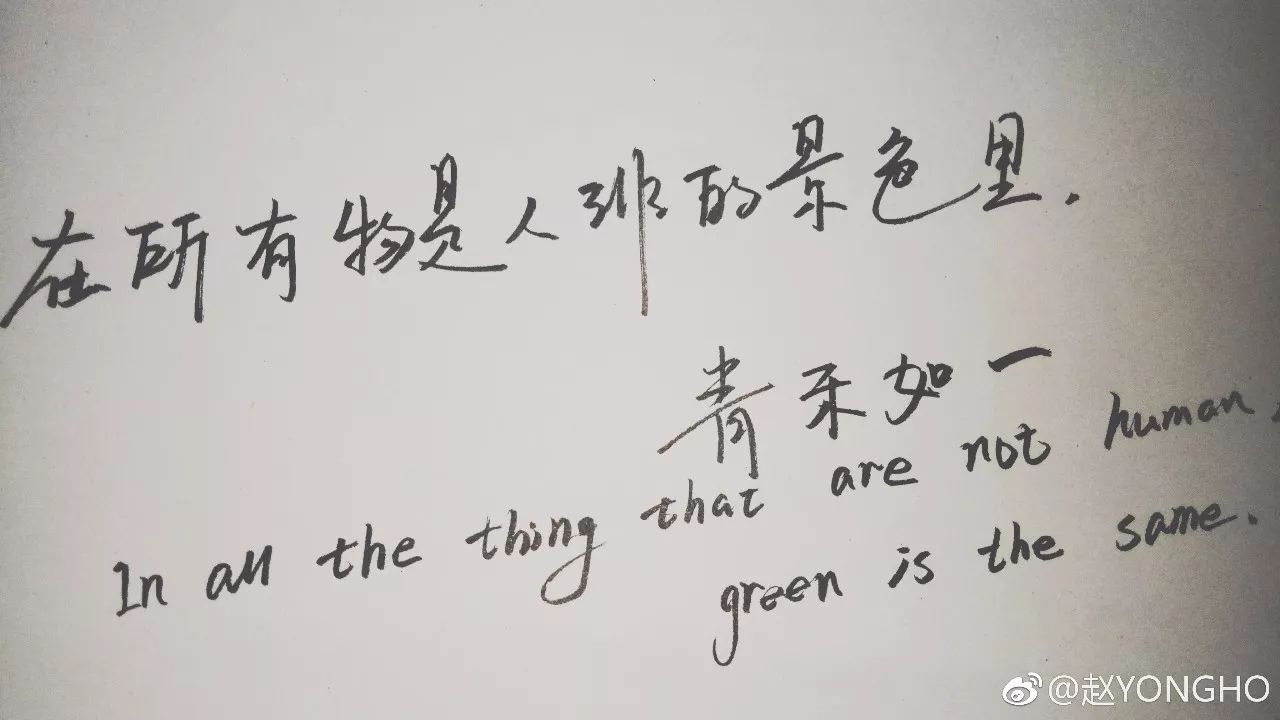 在所有物是人非的景色里.
青禾如一
In all the thing that are not human,
green is the same.
@赵YONGHO